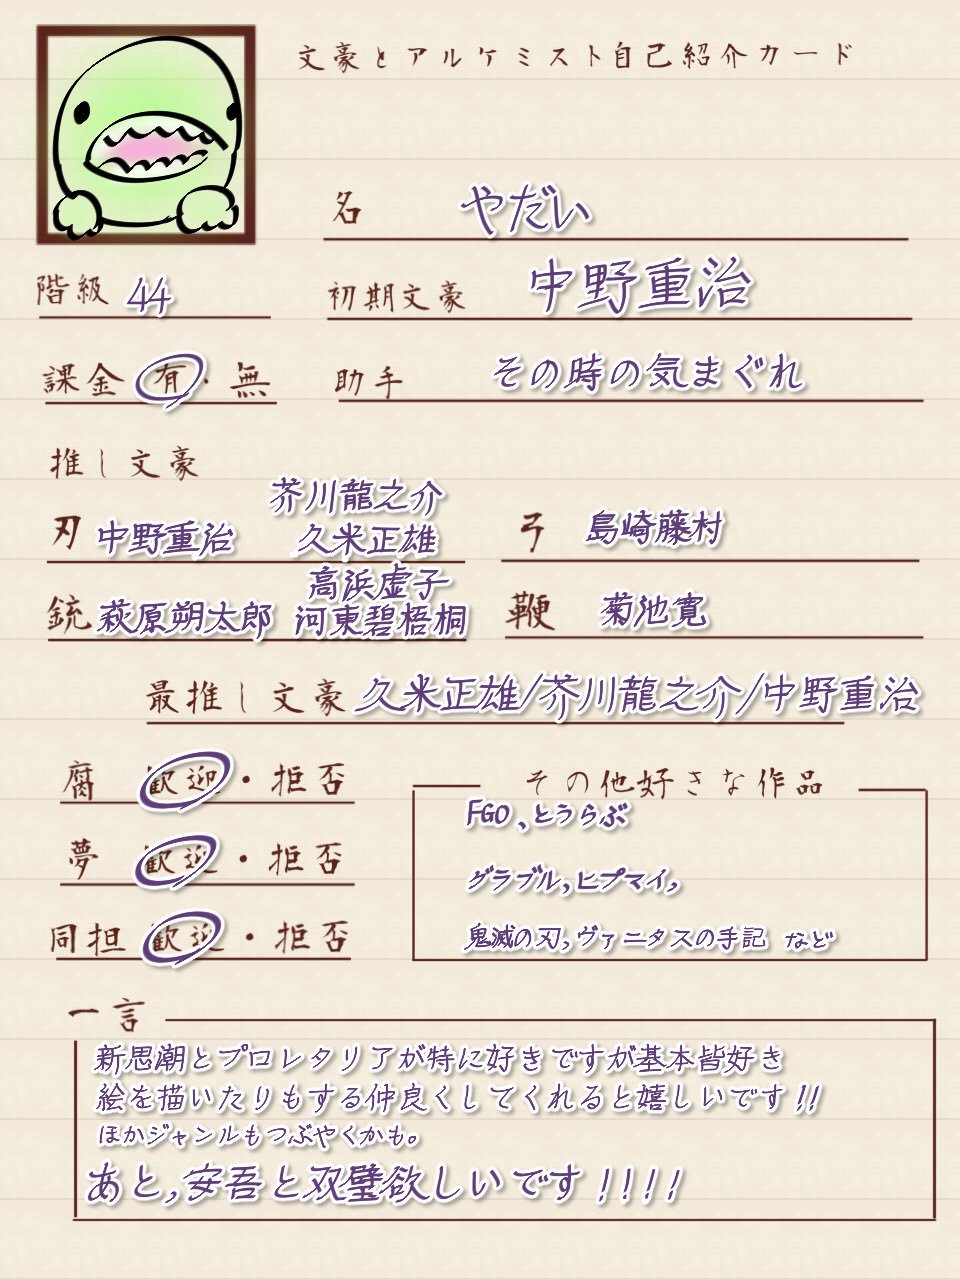 文豪とアルケミスト自己紹介カード
名 やだい
階級 44
初期文豪 中野重治
課金 有・無
助手 その時の気まぐれ
推し文豪
刃 中野重治 芥川龍之介 久米正雄
弓 島崎藤村
銃 萩原朔太郎 高浜虚子 河東碧梧桐
鞭 菊池寛
最推し文豪 久米正雄/芥川龍之介/中野重治
腐 歓迎・拒否
夢 歓迎・拒否
同担 歓迎・拒否
その他好きな作品
FGO、とうらぶ
グラブル,ヒプマイ,
鬼滅の刃,ヴァニタスの手記 など
一言
新思潮とプロレタリアが特に好きですが基本皆好き
絵を描いたりもする仲良くしてくれると嬉しいです!!
ほかジャンルもつぶやくかも。
あと,安吾と双璧欲しいです!!!!